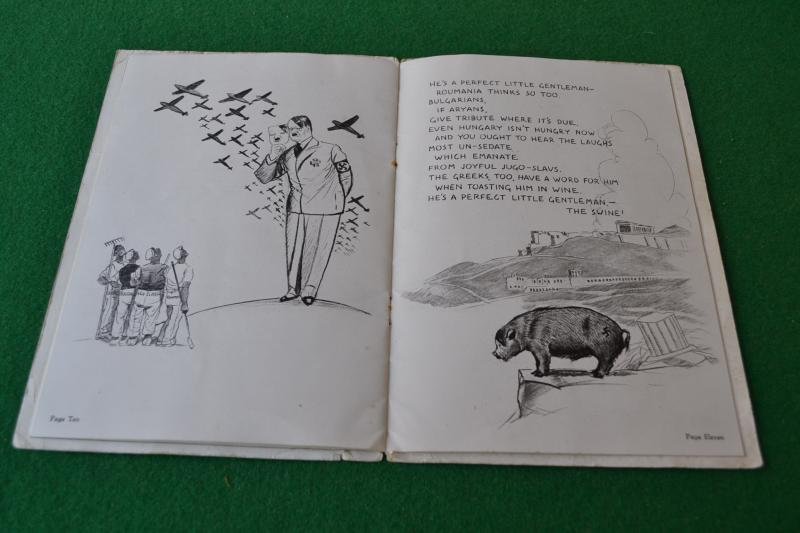 Page Ten
HE'S A PERFECT LITTLE GENTLEMAN—
ROUMANIA THINKS SO TOO.
BULGARIANS,
IF ARYANS,
GIVE TRIBUTE WHERE IT'S DUE.
EVEN HUNGARY ISN'T HUNGRY NOW
AND YOU OUGHT TO HEAR THE LAUGHS
MOST UN-SEDATE,
WHICH EMANATE
FROM JOYFUL JUGO-SLAVS.
THE GREEKS, TOO, HAVE A WORD FOR HIM
WHEN TOASTING HIM IN WINE.
HE'S A PERFECT LITTLE GENTLEMAN—
THE SWINE!
Page Eleven